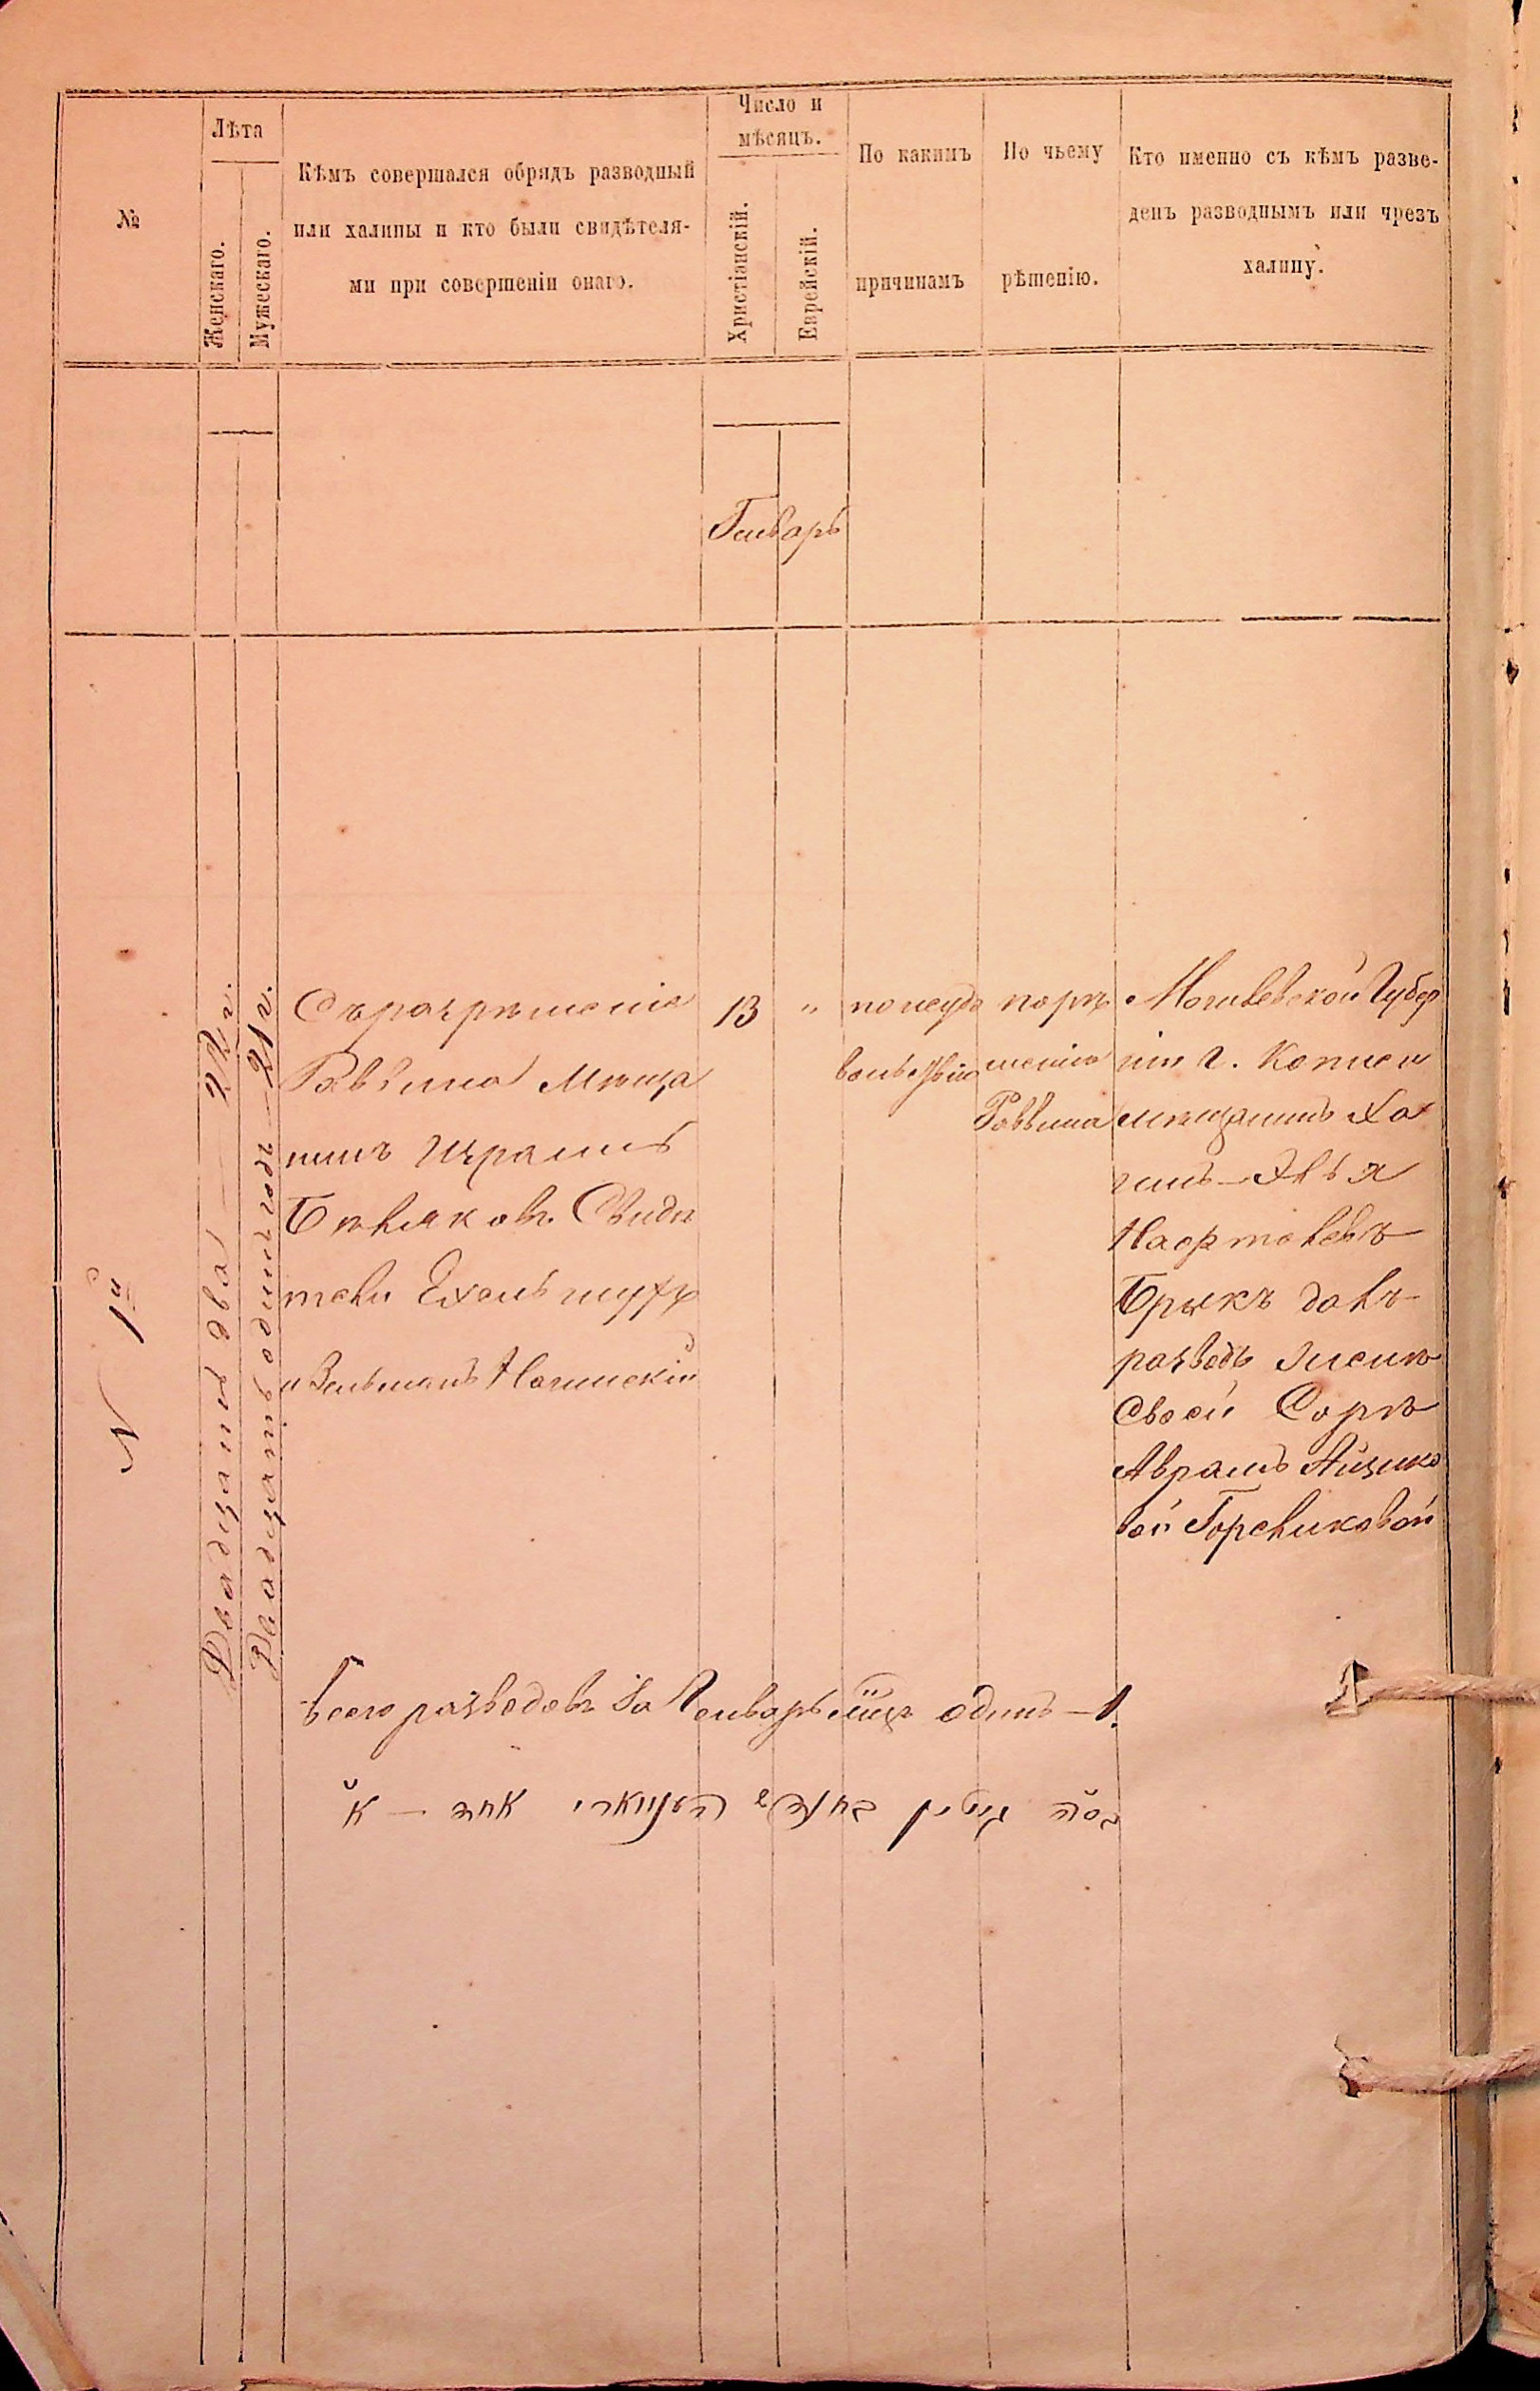 №
Лѣта
Женскаго.
Мужескаго.
Кѣмъ совершался обрядъ разводный
или халицы и кто были свидѣтеля-
ми при совершеніи онаго.
Число и
мѣсяцъ.
Христіанскій.
Еврейскій.
По какимъ
причинамъ
По чьему
рѣшенію.
Кто именно съ кѣмъ разве-
денъ разводнымъ или чрезъ
халицу.
Генварь
N 1й
Двадцать два — 22 г.
Двадцать одинъ годъ — 21 г.
Съ разрѣшенія
Раввина Мѣща
нинъ
Бѣляковъ. Свидѣ
тели
и Зельманъ
13 "
по неудо
вольствію
по рѣ
шенію
Раввина
Могилевской Губер
ніи г. Копыси
мѣщанинъ Ха
имъ-Элья
Брыкъ далъ
разводъ женѣ
Своей Сорѣ
Абрамъ Айзико
вой Гореликовой
Всего разводовъ за Генварь мцъ одинъ — 1.